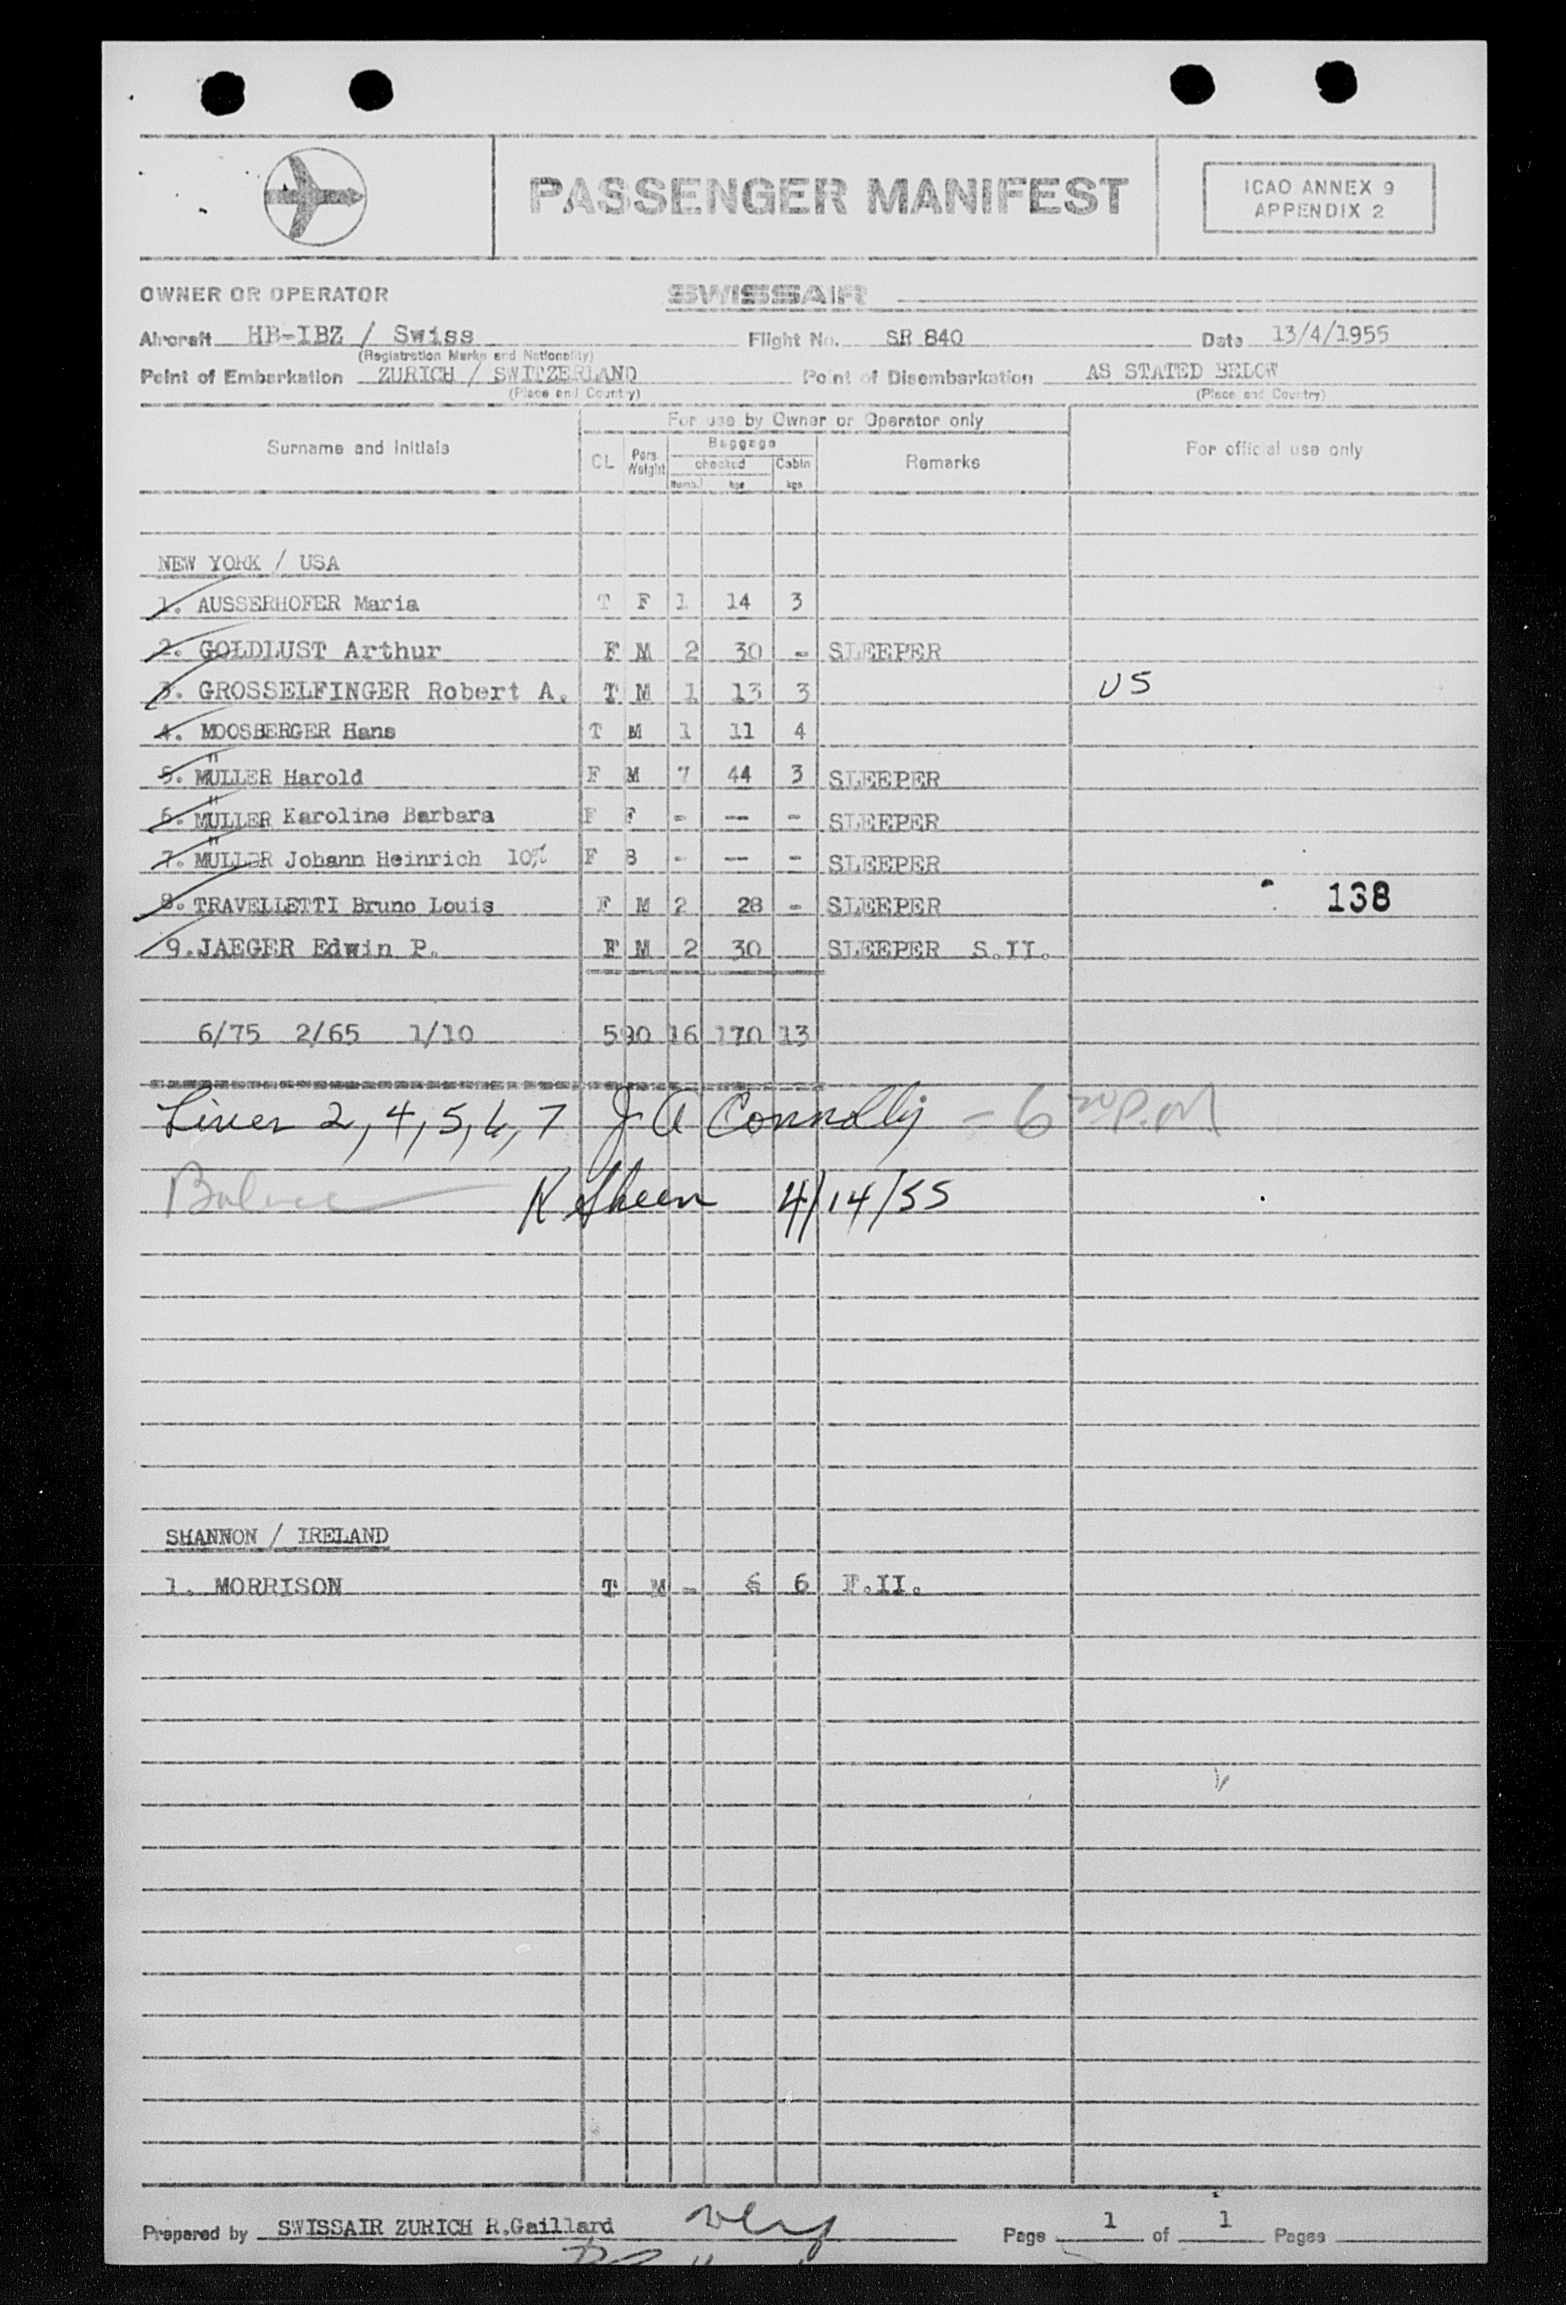 PASSENGER MANIFEST
ICAO ANNEX 9
APPENDIX 2
OWNER OR OPERATOR SWISSAIR
Aircraft HB-IBZ / Swiss Flight No. SR 840 Date 13/4/1955
(Registration Marks and Nationality)
Point of Embarkation ZURICH / SWITZERLAND Point of Disembarkation AS STATED BELOW
(Place and Country) (Place and Country)
For use by Owner or Operator only
Surname and initials CL Pers. Weight Baggage checked Numb. kgs Cabin kgs Remarks For official use only
NEW YORK / USA
1. AUSSERHOFER Maria T F 1 14 3
2. GOLDLUST Arthur F M 2 30 - SLEEPER
3. GROSSELFINGER Robert A. T M 1 13 3 US
4. MOOSBERGER Hans T M 1 11 4
5. MÜLLER Harold F M 7 44 3 SLEEPER
6. MÜLLER Karoline Barbara F F - -- - SLEEPER
7. MÜLLER Johann Heinrich 10% F B - -- - SLEEPER
8. TRAVELLETTI Bruno Louis F M 2 28 - SLEEPER 138
9. JAEGER Edwin P. F M 2 30 SLEEPER S.II.
6/75 2/65 1/10 590 16 170 13
Liner 2, 4, 5, 6, 7 J A Connolly - 6 P.M
Balance K Sheen 4/14/55
SHANNON / IRELAND
1. MORRISON T M - 6 6 F.II.
Prepared by SWISSAIR ZURICH R.Gaillard Page 1 of 1 Pages